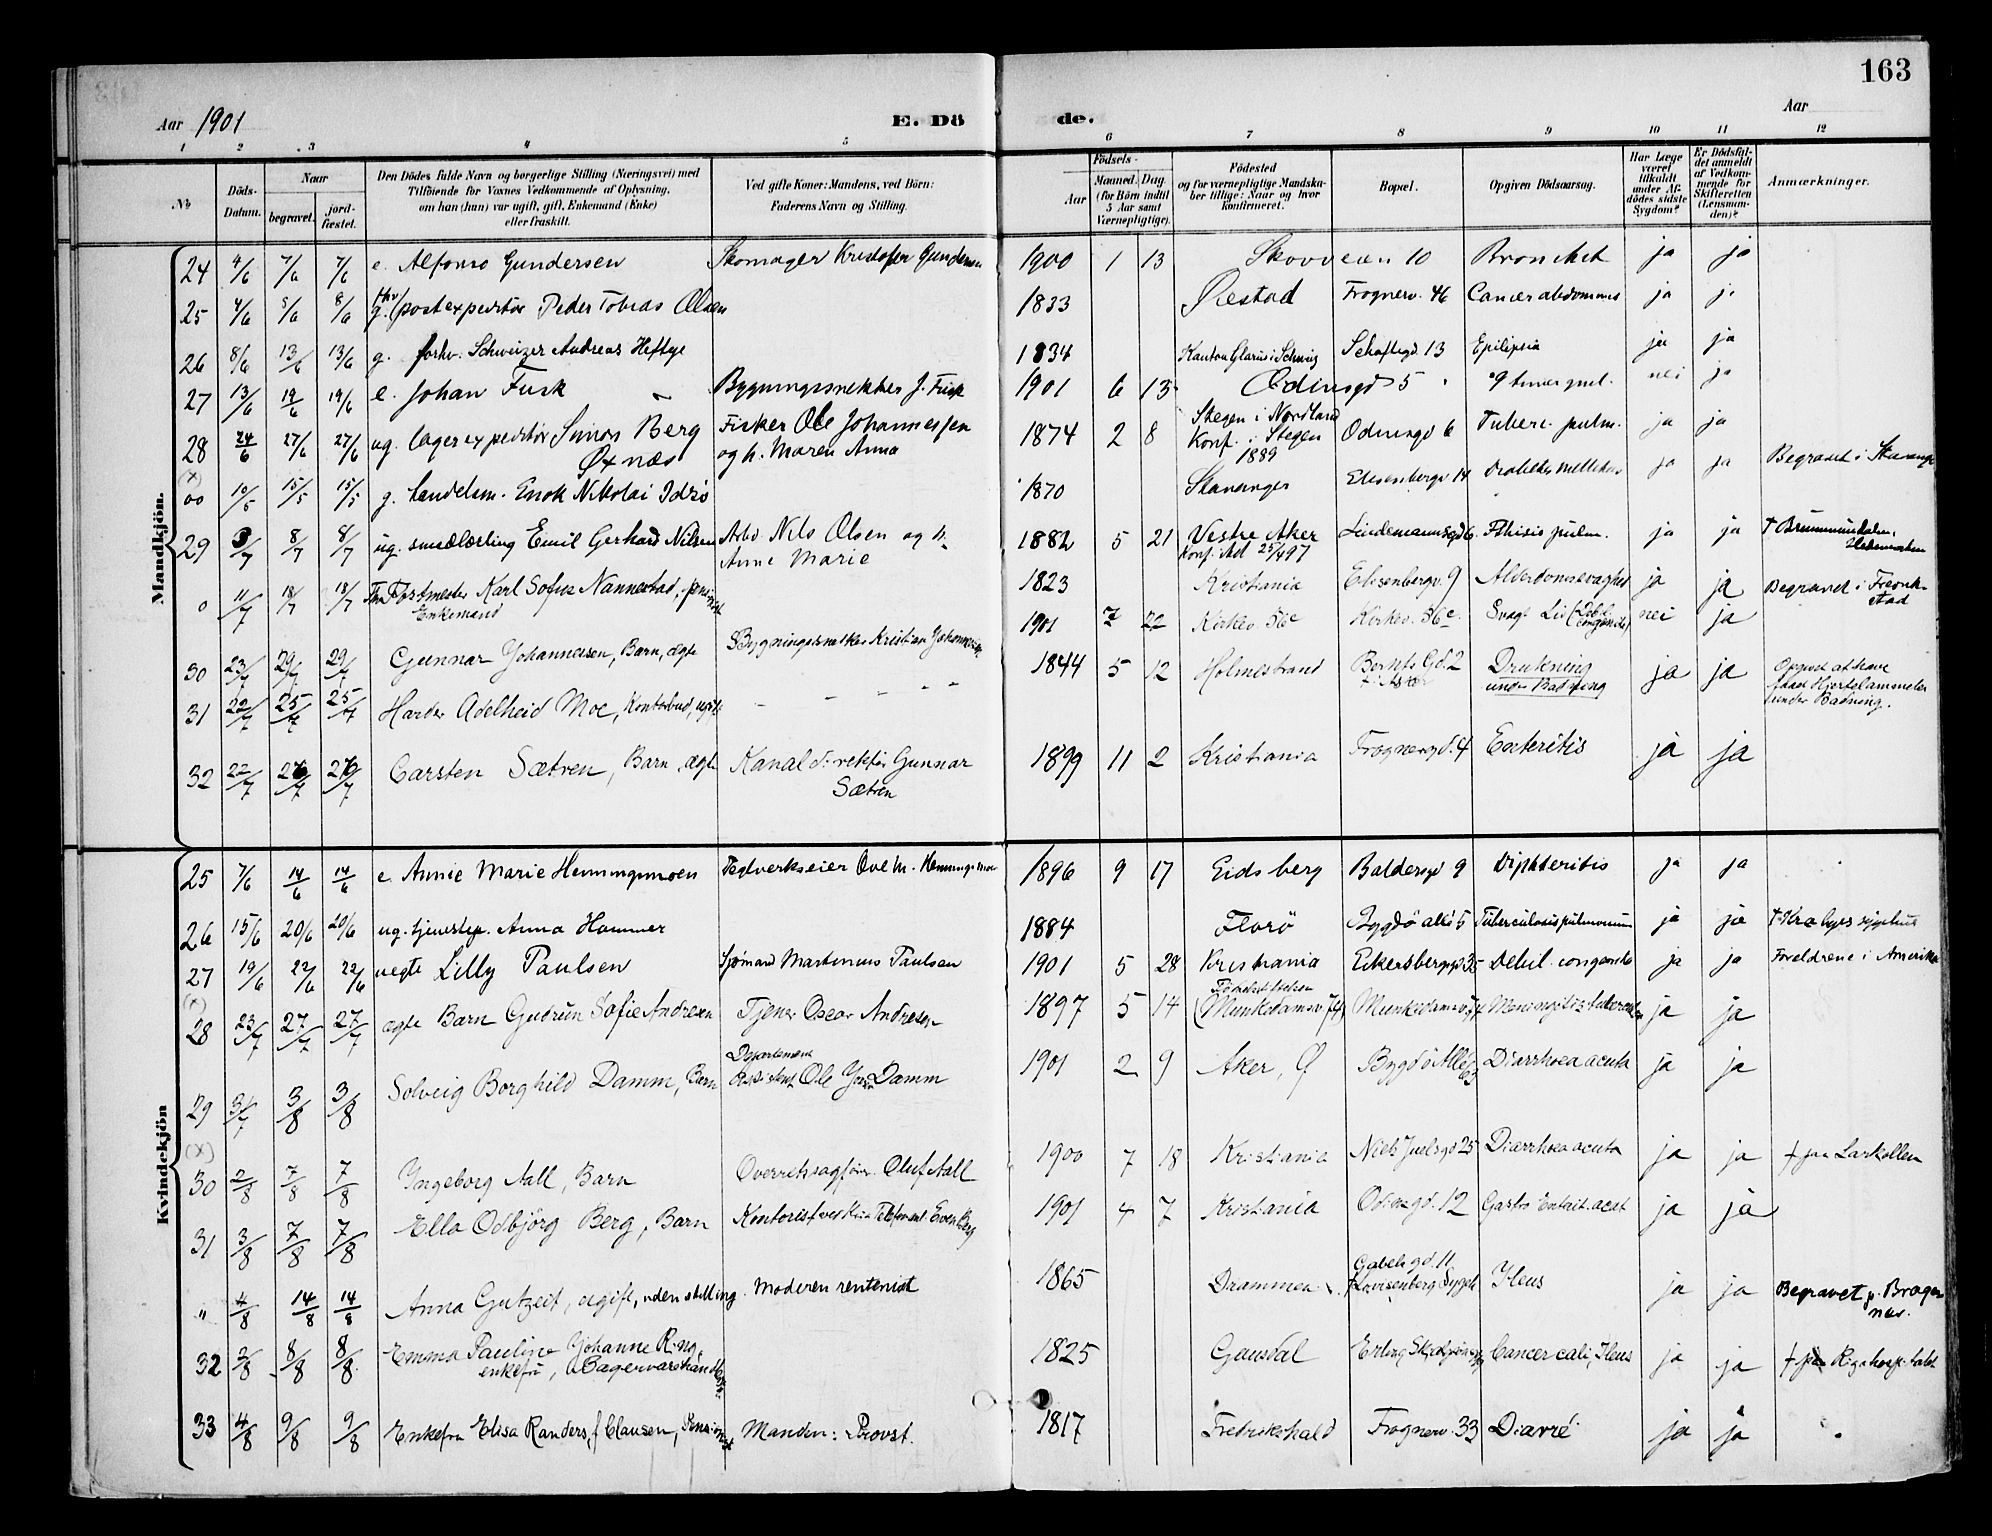 163
Aar 1901
E. Dö
de.
Aar
1 2 3 4 5 6 7 8 9 10 11 12
No
Döds-Datum.
Naar
begravet.
jord-fæstet.
Den Dödes fulde Navn og borgerlige Stilling (Næringsvei) med
Tilföiende for Voxnes Vedkommende af Oplysning,
om han (hun) var ugift, gift, Enkemand (Enke)
eller fraskilt.
Ved gifte Koner: Mandens, ved Börn:
Faderens Navn og Stilling.
Födsels-
Aar
Maaned. Dag.
(for Börn indtil
5 Aar samt
Værnepligtige).
Födested
og for værnepligtige Mandska-
ber tillige: Naar og hvor
konfirmeret.
Bopæl.
Opgiven Dödsaarsag.
Har Læge
været
tilkaldt
under Af-
dödes sidste
Sygdom?
Er Dödsfal-
det anmeldt
af Vedkom-
mende for
Skifteretten
(Lensman-
den)?
Anmærkninger.
Mandkjön.
24 4/6 7/6 7/6 e. Alfonso Gundersen Skomager Kristofer Gundersen 1900 1 13 Skovveien 10 Bronchit ja ja
25 4/6 8/6 8/6 g. fhv. postexpeditör Peder Tobias Olsen 1833 Öiestad Frognerv. 46 Cancer abdominis ja ja
26 8/6 13/6 13/6 g. forhv. Schweizer Andreas Heftye 1834 Kanton Glarus i Schweiz Schaftegd 13 Epilepsia ja ja
27 13/6 19/6 19/6 e. Johan Fusk Bygningssnekker J. Fusk 1901 6 13 Odinsgd 5 9 timer gml. nei ja
28 24/6 27/6 27/6 ug. lagerexpeditör Simon Berg Fisker Ole Johannessen 1874 2 8 Stegen i Nordland Odinsgd 6 Tuberc. pulm. ja ja
Øxnæs og h. Maren Anna Konf. i Stegen
1889
(x)
00 10/5 15/5 15/5 g. handelsm. Enok Nikolai Idsö 1870 Stavanger Elisenbergv 14 Diabetes mellitus ja ja Begravet i Stavanger
29 3/7 8/7 8/7 ug. smedlærling Emil Gerhard Nilsen Arb. Nils Olsen og h. 1882 5 21 Vestre Aker Lindemannsgd 6. Fthisis pulm. ja ja † Brummundalen,
Anne Marie Konf. 25/4 97 Hedemarken
0 11/7 18/7 18/7 Fhv. Postmester Karl Sofus Nannestad, pensionist 1823 Kristiania Elisenbergv. 9 Alderdomssvaghed ja ja Begravet i Fredrik-
Enkemand stad
30 23/7 29/7 29/7 Gunnar Johannesen, Barn, ægte Bygningssnekker Kristian Johannesen 1901 7 22 Kirkev. 56c Kirkev. 56c. Svagt Liv (Debil. congenita) nei ja
31 22/7 25/7 25/7 Harder Adelheid Moe, Kontorbud, ugift 1844 5 12 Holmestrand Bernts Gd. 2 Drukning ja ja Opgivet at have
under Badning faaet Hjertelammelse
under Badning.
32 22/7 26/7 26/7 Carsten Sætren, Barn, ægte Kanaldirektör Gunnar 1899 11 2 Kristiania Frognergd. 4 Enteritis ja ja
Sætren
Kvindekjön
25 7/6 14/6 14/6 e. Annie Marie Henningsmoen Teglverkseier Ove M. Henningsmoen 1896 9 17 Eidsberg Baldersgd 9 Diphteritis ja ja
26 15/6 20/6 20/6 ug. tjenestep. Anna Hammer 1884 Florö Bygdö allé 5 Tuberculosis pulmonum ja ja † Kra byes sygehus
27 19/6 22/6 22/6 uegte Lilly Paulsen Sjömand Martinius Paulsen 1901 5 28 Kristiania Eckersbergsgd 35 Debil. congenita ja ja Foreldrene i Amerika
(x)
28 23/7 27/7 27/7 ægte Barn Gudrun Sofie Andresen Tjener Oscar Andresen 1897 5 14 Födselsstiftelsen (Munkedamsv. 74) Munkedamsv. 74 Meningitis tubercul. ja ja
29 31/7 3/8 3/8 Solveig Borghild Damm, Barn Departements Assistent Ole Damm 1901 2 9 Aker, Ø Bygdö Allé 63 Diarrhoea acuta ja ja
(x)
30 2/8 7/8 7/8 Ingeborg Aall, Barn Overretssagförer Oluf Aall 1900 7 18 Kristiania Niels Juelsgd 25 Diarrhoea acuta ja ja † paa Larkollen
31 3/8 7/8 7/8 Ella Odbjörg Berg, Barn Kontorist ved Kria Telefonanl. Even Berg 1901 4 7 Kristiania Odinsgd. 12 Gastro Enterit. acut ja ja
" 4/8 14/8 14/8 Anna Gutzeit, ugift, uden stilling. Moderen rentenist 1865 Drammen Gabels gd. 11 Ileus ja ja Begravet p. Brager-
† Lovisenberg Sygeh nes.
32 3/8 8/8 8/8 Emma Pauline Johanne Ring, 1825 Gausdal Erling Skjalgsöns gd Cancer coli, Ileus ja ja † paa Rigshospitalet
enkefru,
33 4/8 9/8 9/8 Enkefru Elisa Randers, f. Clausen, Pensionist Manden: Provst. 1817 Fredrikshald Frognerv. 33 Diarré ja ja